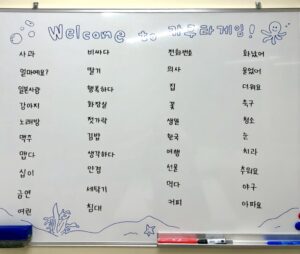 Welcome to
사과 비싸다 전화번호 화났어
얼마예요? 딸기 의사 울었어
일본사람 행복하다 집 더워요
강아지 화장실 꽃 축구
노래방 젓가락 생일 청소
맥주 김밥 한국 눈
맵다 생각하다 여행 치과
십이 안경 선물 추워요
금연 세탁기 먹다 야구
어린 침대 커피 아파요